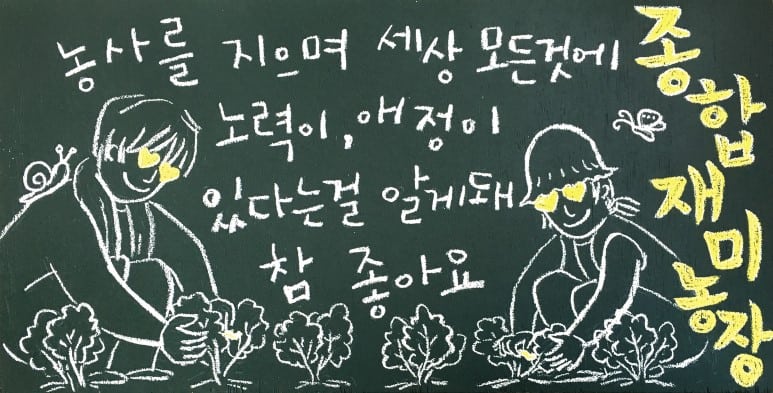 농사를 지으며 세상 모든것에
노력이, 애정이
있다는걸 알게돼
참 좋아요
종합재미농장